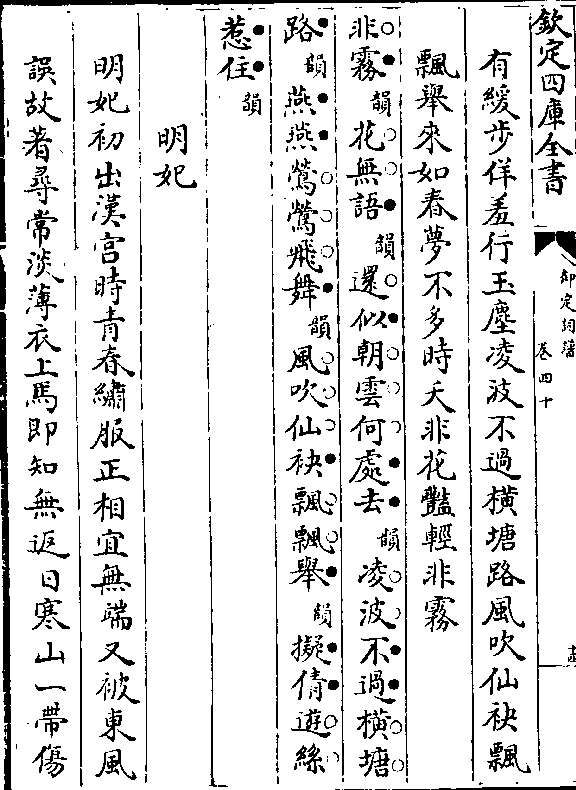 欽定四庫全書
御定詞譜
卷四十
有緩步佯羞行玉塵凌波不過横塘路風吹仙袂飄
飄舉來如春夢不多時夭非花豔輕非霧
非霧韻花無語韻還似朝雲何處去韻凌波不過横塘
路韻燕燕鶯鶯飛舞韻風吹仙袂飄飄舉韻擬倩遊絲
惹住韻
明妃
明妃初出漢宫時青春繡服正相宜無端又被東風
誤故著尋常淡薄衣上馬即知無返日寒山一帶傷